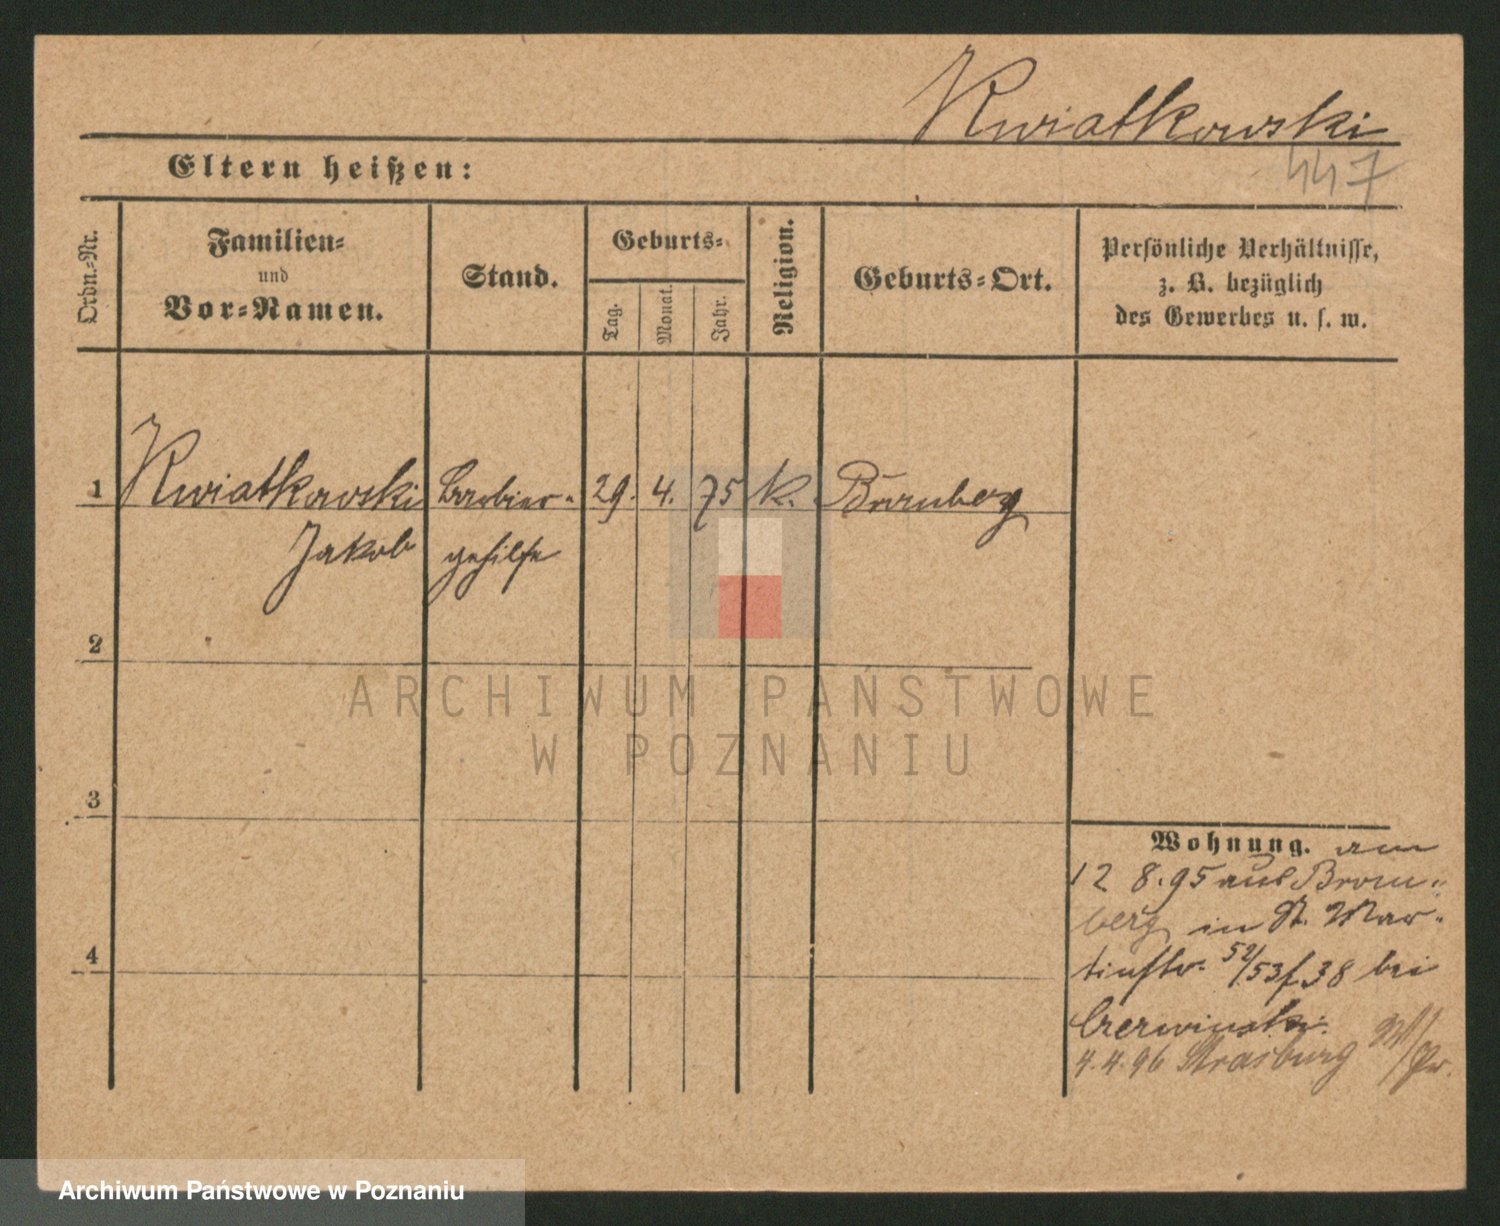 Kwiatkowski
447
Eltern heißen:
Ordn.-Nr.
Familien-
und
Vor-Namen.
Stand.
Geburts-
Tag.
Monat.
Jahr.
Religion.
Geburts-Ort.
Persönliche Verhältnisse,
z. B. bezüglich
des Gewerbes u. s. w.
1 Kwiatkowski Barbier- 29. 4. 75 k. Bromberg
Jakob gehilfe
2
3
4
Wohnung. am
12 8.95 aus Brom-
berg in St. Mar-
tinstr. 52/53 f. 38 bei
Czerwinski.
4.4.96 Strasburg W/Pr.
ARCHIWUM PAŃSTWOWE
W POZNANIU
Archiwum Państwowe w Poznaniu